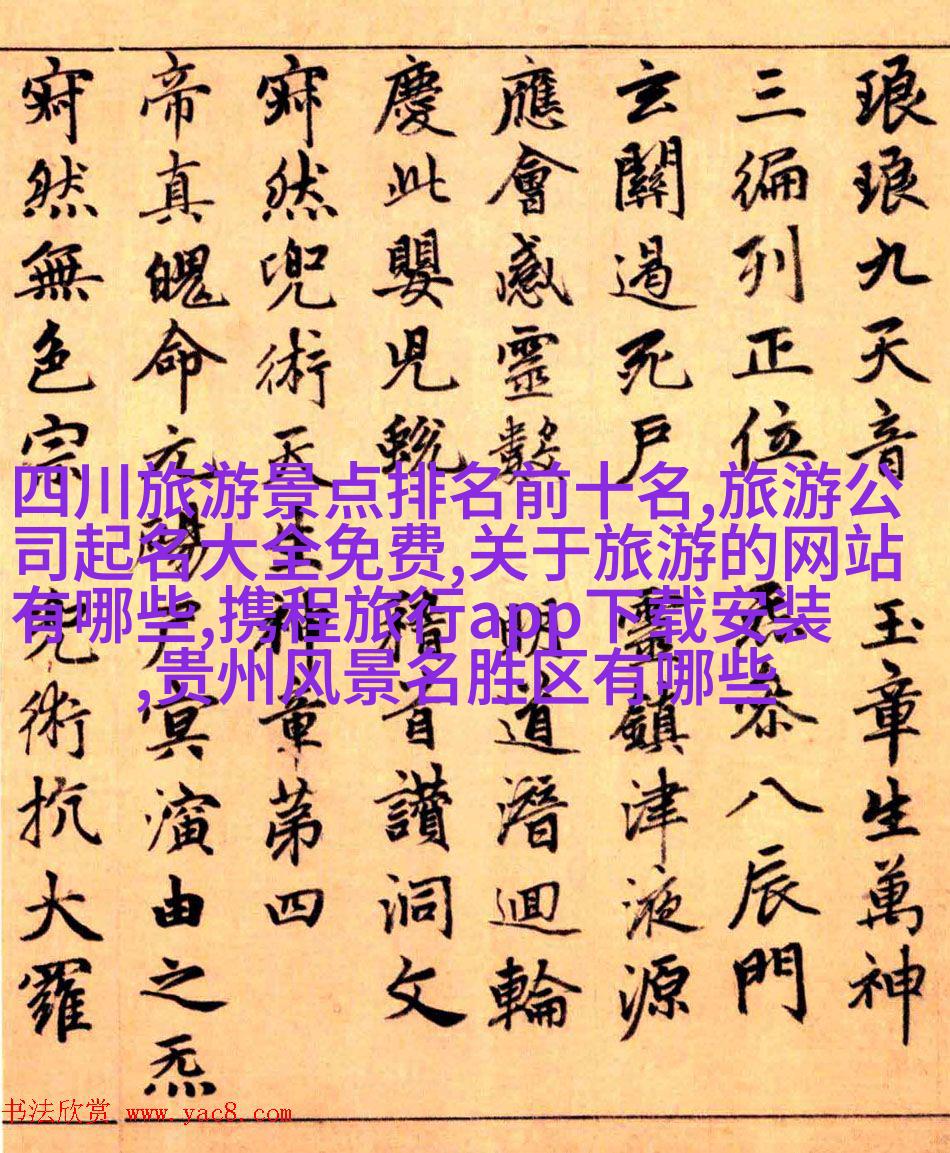 琅琅九天音 玉章生萬神
三徧列正位 八辰門
玄關遏死戶 靈鎮津液源
應會感靈數 明道潛迴輪
慶此嬰兒 稽首讚洞文
寂然兜術天生神章第四
帝真魄命元 冥演由之炁
寂然無色宗 兜術抗大羅
四川旅游景点排名前十名,旅游公
司起名大全免费,关于旅游的网站
有哪些,携程旅行app下载安装
,贵州风景名胜区有哪些
书法欣赏 www.yac8.com